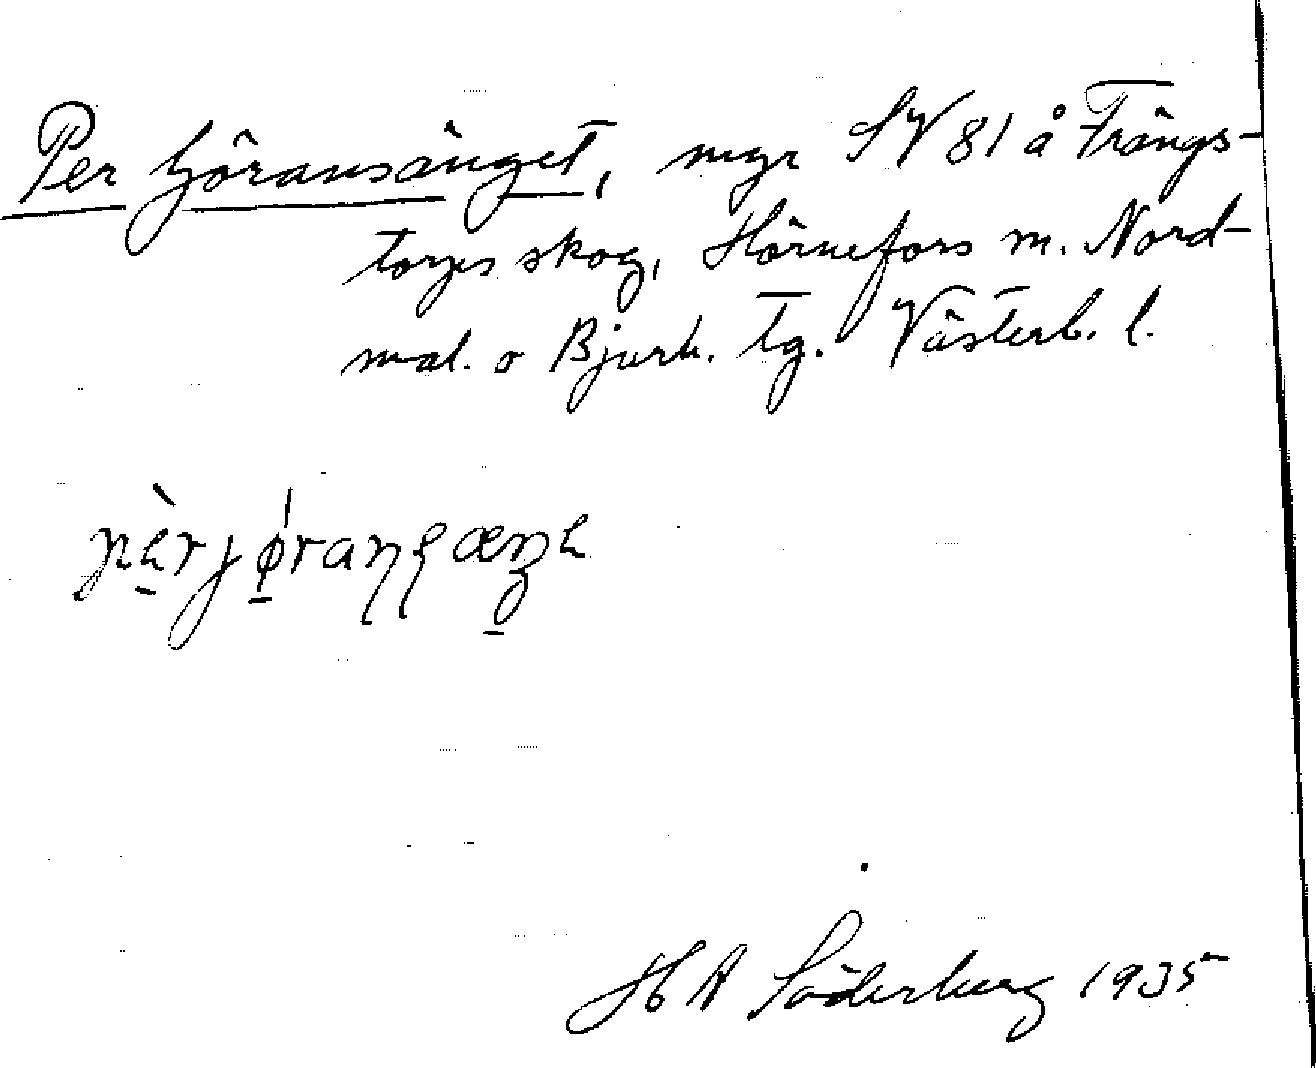 Per Göransänget, myr SV 81 å Trängs-
torps skog, Hörnefors m. Nord-
mal. o Bjurh. tg. Västerb. l.
H A Söderberg 1935